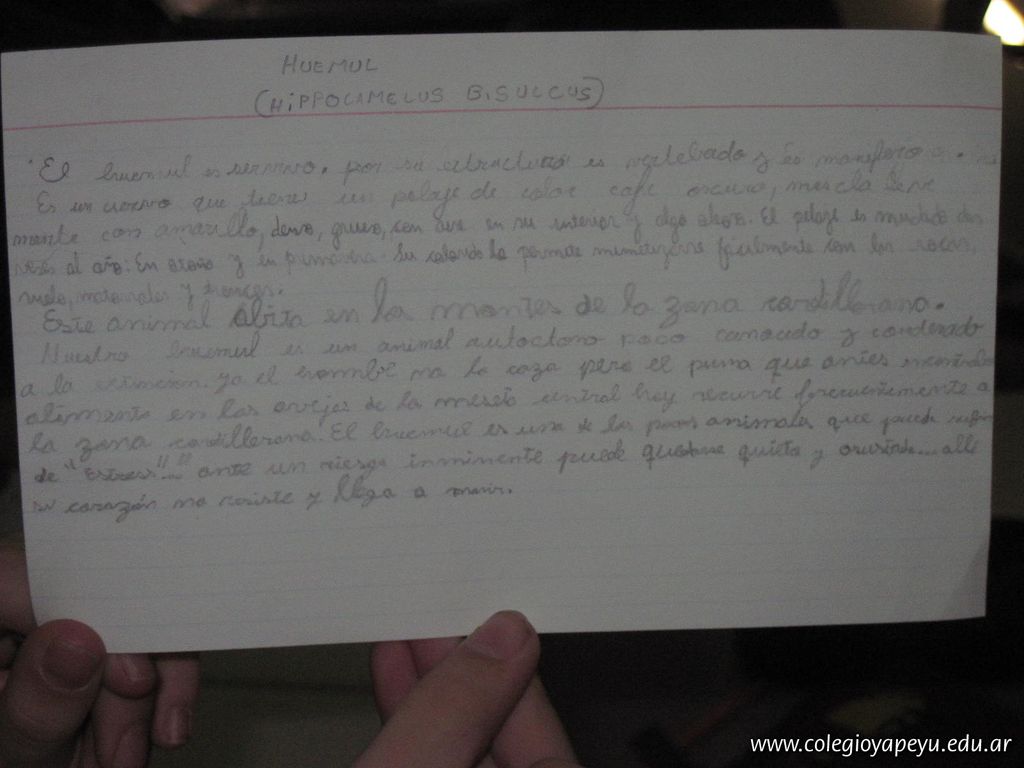 HUEMUL
(HiPPOCAMELUS BiSULCUS)
El huemul es servivo. por su estructura es vertebado y es mamifero
Es un ciervo que tiene un pelaje de color cafe oscuro, mescla leve
mente con amarillo, denso, grueso, con aire en su interior y algo aboso. El pelaje es mudado dos
veses al año: En otoño y en primavera. Su colorido le permite mimetizarse facilmente con las rocas,
suelo, matorrales y troncos.
Este animal abita en los montes de la zona cordillerana.
Nuestro huemul es un animal autoctono poco conocido y condenado
a la extincion. ya el hombre no lo caza pero el puma que antes encontraba
alimento en las ovejas de la meseta central hoy recurre frecuentemente a
la zona cordillerana. El huemul es uno de los pocos animales que puede sufrir
de "Estres"... ante un riesgo inminente puede quedarse quieto y alli
su corazón no resiste y llega a morir.
www.colegioyapeyu.edu.ar